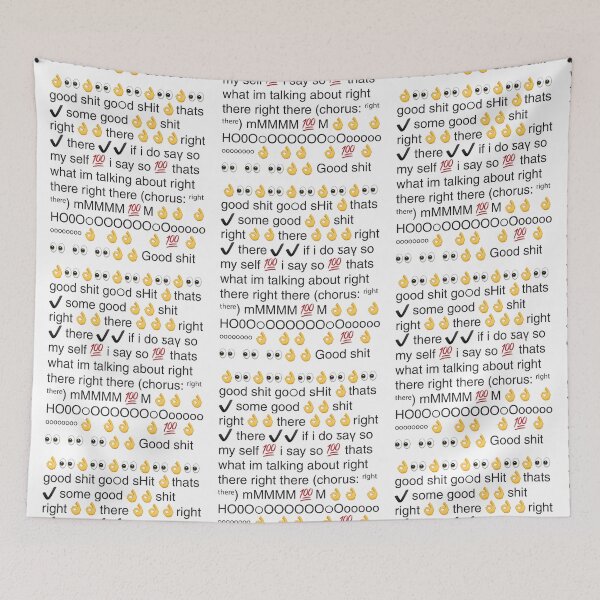 👌👀👌👀👌👀👌👀👌👀
good shit go౦d sHit 👌thats
✔ some good👌👌shit
right👌👌there👌👌👌right
✔there ✔✔if i do ƽaү so
my self 💯 i say so 💯 thats
what im talking about right
there right there (chorus: ʳᶦᵍʰᵗ
ᵗʰᵉʳᵉ) mMMMM 💯 M 👌👌 👌
HO0O૦OOOOOO૦Oooooo
ᵒᵒᵒᵒᵒᵒᵒᵒᵒ👌 👌👌 👌 💯 👌
👀 👀 👀 👌👌 Good shit
👌👀👌👀👌👀👌👀👌👀
good shit go౦d sHit 👌thats
✔ some good👌👌shit
right👌👌there👌👌👌right
✔there ✔✔if i do ƽaү so
my self 💯 i say so 💯 thats
what im talking about right
there right there (chorus: ʳᶦᵍʰᵗ
ᵗʰᵉʳᵉ) mMMMM 💯 M 👌👌 👌
HO0O૦OOOOOO૦Oooooo
ᵒᵒᵒᵒᵒᵒᵒᵒᵒ👌 👌👌 👌 💯 👌
👀 👀 👀 👌👌 Good shit
👌👀👌👀👌👀👌👀👌👀
good shit go౦d sHit 👌thats
✔ some good👌👌shit
right👌👌there👌👌👌right
my self 💯 i say so 💯 thats
what im talking about right
there right there (chorus: ʳᶦᵍʰᵗ
ᵗʰᵉʳᵉ) mMMMM 💯 M 👌👌 👌
HO0O૦OOOOOO૦Oooooo
ᵒᵒᵒᵒᵒᵒᵒᵒᵒ👌 👌👌 👌 💯 👌
👀 👀 👀 👌👌 Good shit
👌👀👌👀👌👀👌👀👌👀
good shit go౦d sHit 👌thats
✔ some good👌👌shit
right👌👌there👌👌👌right
✔there ✔✔if i do ƽaү so
my self 💯 i say so 💯 thats
what im talking about right
there right there (chorus: ʳᶦᵍʰᵗ
ᵗʰᵉʳᵉ) mMMMM 💯 M 👌👌 👌
HO0O૦OOOOOO૦Oooooo
ᵒᵒᵒᵒᵒᵒᵒᵒᵒ👌 👌👌 👌 💯 👌
👀 👀 👀 👌👌 Good shit
👌👀👌👀👌👀👌👀👌👀
good shit go౦d sHit 👌thats
✔ some good👌👌shit
right👌👌there👌👌👌right
✔there ✔✔if i do ƽaү so
my self 💯 i say so 💯 thats
what im talking about right
there right there (chorus: ʳᶦᵍʰᵗ
ᵗʰᵉʳᵉ) mMMMM 💯 M 👌👌 👌
HO0O૦OOOOOO૦Oooooo
👌👀👌👀👌👀👌👀👌👀
good shit go౦d sHit 👌thats
✔ some good👌👌shit
right👌👌there👌👌👌right
✔there ✔✔if i do ƽaү so
my self 💯 i say so 💯 thats
what im talking about right
there right there (chorus: ʳᶦᵍʰᵗ
ᵗʰᵉʳᵉ) mMMMM 💯 M 👌👌 👌
HO0O૦OOOOOO૦Oooooo
ᵒᵒᵒᵒᵒᵒᵒᵒᵒ👌 👌👌 👌 💯 👌
👀 👀 👀 👌👌 Good shit
👌👀👌👀👌👀👌👀👌👀
good shit go౦d sHit 👌thats
✔ some good👌👌shit
right👌👌there👌👌👌right
✔there ✔✔if i do ƽaү so
my self 💯 i say so 💯 thats
what im talking about right
there right there (chorus: ʳᶦᵍʰᵗ
ᵗʰᵉʳᵉ) mMMMM 💯 M 👌👌 👌
HO0O૦OOOOOO૦Oooooo
ᵒᵒᵒᵒᵒᵒᵒᵒᵒ👌 👌👌 👌 💯 👌
👀 👀 👀 👌👌 Good shit
👌👀👌👀👌👀👌👀👌👀
good shit go౦d sHit 👌thats
✔ some good👌👌shit
right👌👌there👌👌👌right